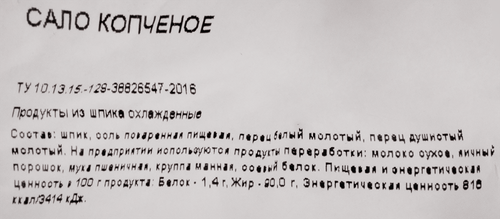 САЛО КОПЧЕНОЕ
ТУ 10.13.15.-129-38826547-2016
Продукты из шпика охлажденные
Состав: шпик, соль поваренная пищевая, перец белый молотый, перец душистый
молотый. На предприятии используются продукты переработки: молоко сухое, яичный
порошок, мука пшеничная, круппа манная, соевый белок. Пищевая и энергетическая
ценность в 100 г продукта: Белок - 1,4 г, Жир - 90,0 г, Энергетическая ценность 816
ккал/3414 кДж.